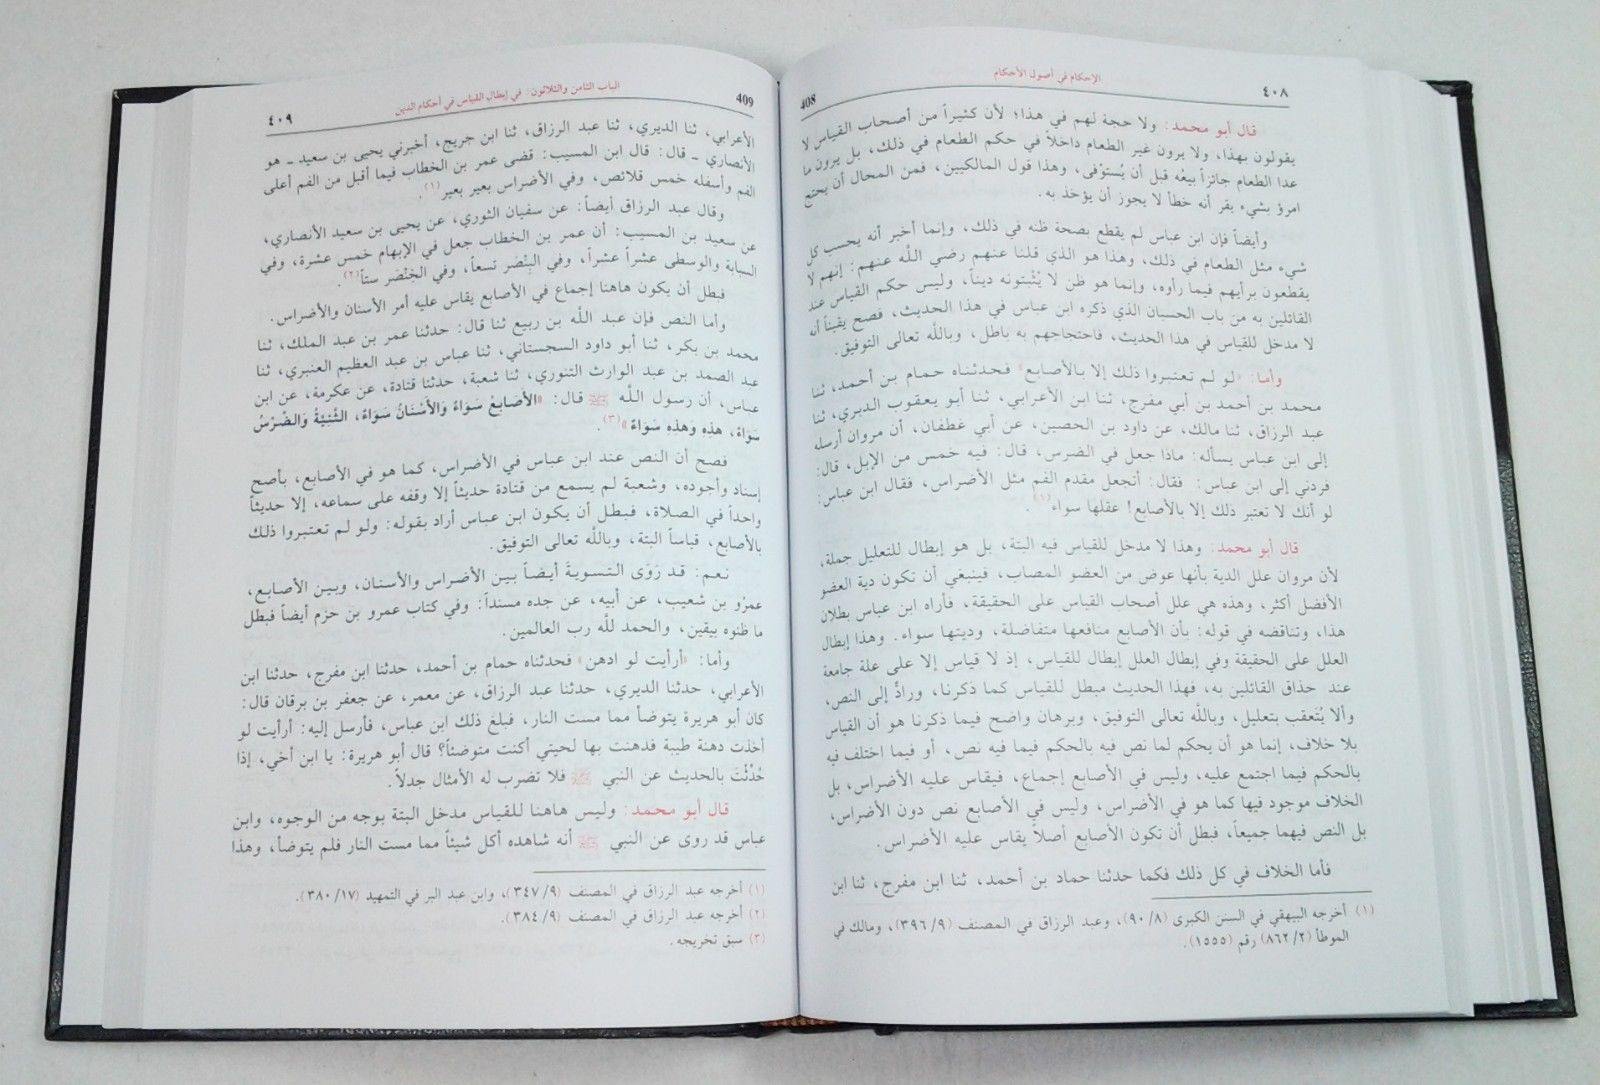 ٤٠٨
الإحكام في أصول الأحكام
408
قال أبو محمد: ولا حجة لهم في هذا؛ لأن كثيراً من أصحاب القياس لا
يقولون بهذا، ولا يرون غير الطعام داخلاً في حكم الطعام في ذلك، بل يرون ما
عدا الطعام جائزاً بيعُه قبل أن يُستوْفى، وهذا قول المالكيين، فمن المحال أن يحتج
امرؤ بشيء يقر أنه خطأ لا يجوز أن يؤخذ به.
وأيضاً فإن ابن عباس لم يقطع بصحة ظنه في ذلك، وإنما أخبر أنه يحسب كل
شيء مثل الطعام في ذلك، وهذا هو الذي قلنا عنهم رضي اللَّه عنهم: إنهم لا
يقطعون برأيهم فيما رأوه، وإنما هو ظن لا يُثْبتونه ديناً، وليس حكم القياس عند
القائلين به من باب الحسبان الذي ذكره ابن عباس في هذا الحديث، فصح يقيناً أنه
لا مدخل للقياس في هذا الحديث، فاحتجاجهم به باطل، وباللَّه تعالى التوفيق.
وأما: «لو لم تعتبروا ذلك إلا بالأصابع» فحدثناه حمام بن أحمد، ثنا
محمد بن أحمد بن أبي مفرج، ثنا ابن الأعرابي، ثنا أبو يعقوب الديري، ثنا
عبد الرزاق، ثنا مالك، عن داود بن الحصين، عن أبي غطفان، أن مروان أرسله
إلى ابن عباس يسأله: ماذا جعل في الضرس، قال: فيه خمس من الإبل، قال:
فردني إلى ابن عباس: فقال: أتجعل مقدم الفم مثل الأضراس، فقال ابن عباس:
لو أنك لا تعتبر ذلك إلا بالأصابع! عقلها سواء (١).
قال أبو محمد: وهذا لا مدخل للقياس فيه البتة، بل هو إبطال للتعليل جملة،
لأن مروان علل الدية بأنها عوض من العضو المصاب، فينبغي أن تكون دية العضو
الأفضل أكثر، وهذه هي علل أصحاب القياس على الحقيقة، فأراه ابن عباس بطلان
هذا، وتناقضه في قوله: بأن الأصابع منافعها متفاضلة، وديتها سواء. وهذا إبطال
العلل على الحقيقة وفي إبطال العلل إبطال للقياس، إذ لا قياس إلا على علة جامعة
عند حذاق القائلين به، فهذا الحديث مبطل للقياس كما ذكرنا، ورادٌّ إلى النص،
وألا يُتعقب بتعليل، وباللَّه تعالى التوفيق، وبرهان واضح فيما ذكرنا هو أن القياس
بلا خلاف، إنما هو أن يحكم لما نص فيه بالحكم فيما فيه نص، أو فيما اختلف فيه
بالحكم فيما اجتمع عليه، وليس في الأصابع إجماع، فيقاس عليه الأضراس، بل
الخلاف موجود فيها كما هو في الأضراس، وليس في الأصابع نص دون الأضراس،
بل النص فيهما جميعاً، فبطل أن تكون الأصابع أصلاً يقاس عليه الأضراس.
فأما الخلاف في كل ذلك فكما حدثنا حماد بن أحمد، ثنا ابن مفرج، ثنا ابن
(١) أخرجه البيهقي في السنن الكبرى (٩٠/٨)، وعبد الرزاق في المصنف (٣٩٦/٩)، ومالك في
الموطأ (٨٦٢/٢) رقم (١٥٥٥).
409
الباب الثامن والثلاثون: في إبطال القياس في أحكام الدين
٤٠٩
الأعرابي، ثنا الديري، ثنا عبد الرزاق، ثنا ابن جريج، أخبرني يحيى بن سعيد ـ هو
الأنصاري ـ قال: قال ابن المسيب: قضى عمر بن الخطاب فيما أقبل من الفم أعلى
الفم وأسفله خمس قلائص، وفي الأضراس بعير بعير (١).
وقال عبد الرزاق أيضاً: عن سفيان الثوري، عن يحيى بن سعيد الأنصاري،
عن سعيد بن المسيب: أن عمر بن الخطاب جعل في الإبهام خمس عشرة، وفي
السبابة والوسطى عشراً عشراً، وفي البِنْصَر تسعاً، وفي الخِنْصَر ستاً (٢).
فبطل أن يكون هاهنا إجماع في الأصابع يقاس عليه أمر الأسنان والأضراس.
وأما النص فإن عبد اللَّه بن ربيع ثنا قال: حدثنا عمر بن عبد الملك، ثنا
محمد بن بكر، ثنا أبو داود السجستاني، ثنا عباس بن عبد العظيم العنبري، ثنا
عبد الصمد بن عبد الوارث التنوري، ثنا شعبة، حدثنا قتادة، عن عكرمة، عن ابن
عباس، أن رسول اللَّه ﷺ قال: «الأَصَابعُ سَوَاءٌ وَالأَسْنَانُ سَوَاءٌ، الثَّنِيَّةُ وَالضِّرْسُ
سَوَاءٌ، هَذِهِ وهَذِهِ سَوَاءٌ» (٣).
فصح أن النص عند ابن عباس في الأضراس، كما هو في الأصابع، بأصح
إسناد وأجوده، وشعبة لم يسمع من قتادة حديثاً إلا وقفه على سماعه، إلا حديثاً
واحداً في الصلاة، فبطل أن يكون ابن عباس أراد بقوله: ولو لم تعتبروا ذلك
بالأصابع، قياساً البتة، وباللَّه تعالى التوفيق.
نعم: قد رَوَى التسويةَ أيضاً بين الأضراس والأسنان، وبين الأصابع،
عمرُو بن شعيب، عن أبيه، عن جده مسنداً: وفي كتاب عمرو بن حزم أيضاً فبطل
ما ظنوه بيقين، والحمد للَّه رب العالمين.
وأما: «أرأيت لو ادهن» فحدثناه حمام بن أحمد، حدثنا ابن مفرج، حدثنا ابن
الأعرابي، حدثنا الديري، حدثنا عبد الرزاق، عن معمر، عن جعفر بن برقان قال:
كان أبو هريرة يتوضأ مما مست النار، فبلغ ذلك ابن عباس، فأرسل إليه: أرأيت لو
أخذت دهنة طيبة فدهنت بها لحيتي أكنت متوضئاً؟ قال أبو هريرة: يا ابن أخي، إذا
حُدِّثْتَ بالحديث عن النبي ﷺ فلا تضرب له الأمثال جدلاً.
قال أبو محمد: وليس هاهنا للقياس مدخل البتة بوجه من الوجوه، وابن
عباس قد روى عن النبي ﷺ أنه شاهده أكل شيئاً مما مست النار فلم يتوضأ، وهذا
(١) أخرجه عبد الرزاق في المصنف (٣٤٧/٩)، وابن عبد البر في التمهيد (٣٨٠/١٧).
(٢) أخرجه عبد الرزاق في المصنف (٣٨٤/٩).
(٣) سبق تخريجه.